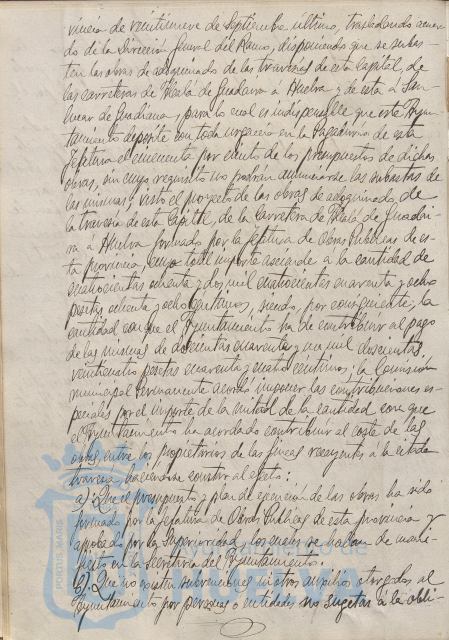 vincia de veintinueve de Septiembre último, trasladando acuer-
do de la Dirección general del Ramo, disponiendo que se subas-
ten las obras de adoquinado de las travesías de esta capital, de
las carreteras de Alcalá de Guadaira a Huelva y de esta á San-
lucar de Guadiana, para lo cual es indispensable que este Ayun-
tamiento deposite con toda urgencia en la Pagaduría de esta
Jefatura el cincuenta por ciento de los presupuestos de dichas
obras, sin cuyo requisito no podran anunciarse las subastas de
las mismas; visto el proyecto de las obras de adoquinado de
la travesía de esta Capital, de la Carretera de Alcalá de Guadai-
ra á Huelva formado por la Jefatura de Obras Publicas de es-
ta provincia, cuyo total importe asciende á la cantidad de
cuatrocientas ochenta y dos mil cuatrocientas cuarenta y ocho
pesetas ochenta y ocho centimos, siendo, por consiguiente, la
cantidad con que el Ayuntamiento ha de contribuir al pago
de las mismas de doscientas cuarenta y un mil doscientas
veinticuatro pesetas cuarenta y cuatro centimos, la Comisión
municipal Permanente acordó imponer las contribuciones es-
peciales por el importe de la mitad de la cantidad con que
el Ayuntamiento ha acordado contribuir al coste de las
obras, entre los propietarios de las fincas recayentes á la citada
travesía, haciendose constar al efecto:
a) Que el presupuesto y plan de ejecución de las obras ha sido
formado por la Jefatura de Obras Publicas de esta provincia y
aprobado por la Superioridad, los cuales se hallan de mani-
fiesto en la Secretaría del Ayuntamiento.
b) Que no existen subvenciones ni otros auxilios otorgados al
Ayuntamiento por personas o entidades no sugetas á la obli-
PORTUS MARIS
Ayuntamiento de